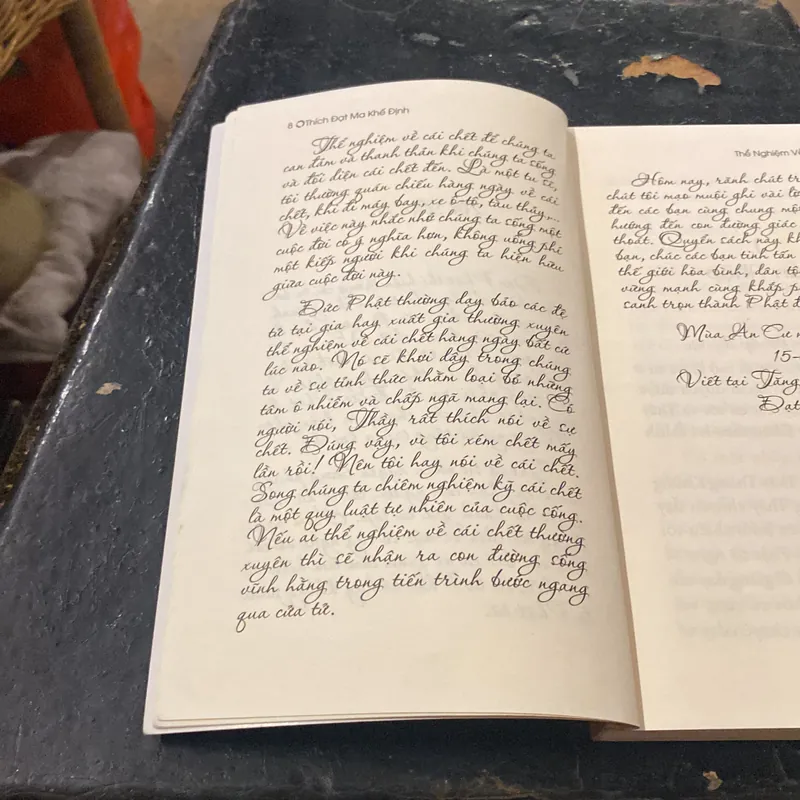 8 Thích Đạt Ma Khế Định
Thể nghiệm về cái chết để chúng ta
can đảm và thanh thản khi chúng ta sống
và đối diện cái chết đến. Là một tu sĩ,
tôi thường quán chiếu hàng ngày về cái
chết, khi đi máy bay, xe ô-tô, tàu thủy...
Về việc này nhắc nhở chúng ta sống một
cuộc đời có ý nghĩa hơn, không uổng phí
một kiếp người khi chúng ta hiện hữu
giữa cuộc đời này.
Đức Phật thường dạy bảo các đệ
tử tại gia hay xuất gia thường xuyên
thể nghiệm về cái chết hàng ngày bất cứ
lúc nào. Nó sẽ khơi dậy trong chúng
ta về sự tỉnh thức nhằm loại bỏ những
tâm ô nhiễm và chấp ngã mang lại. Có
người nói, Thầy rất thích nói về sự
chết. Đúng vậy, vì tôi xém chết mấy
lần rồi! Nên tôi hay nói về cái chết.
Song chúng ta chiêm nghiệm kỹ cái chết
là một quy luật tự nhiên của cuộc sống.
Nếu ai thể nghiệm về cái chết thường
xuyên thì sẽ nhận ra con đường sống
vĩnh hằng trong tiến trình bước ngang
qua cửa tử.
Thể Nghiệm Về
Hôm nay, rãnh chút
chút tôi mạo muội ghi vài
đến các bạn cùng chung một
hướng đến con đường giác
thoát. Quyển sách này
bạn, chúc các bạn tinh tấn
thế giới hòa bình, dân tộc
vững mạnh cùng khắp
sanh trọn thành Phật
Mùa An Cư
15-
Viết tại
Đạt